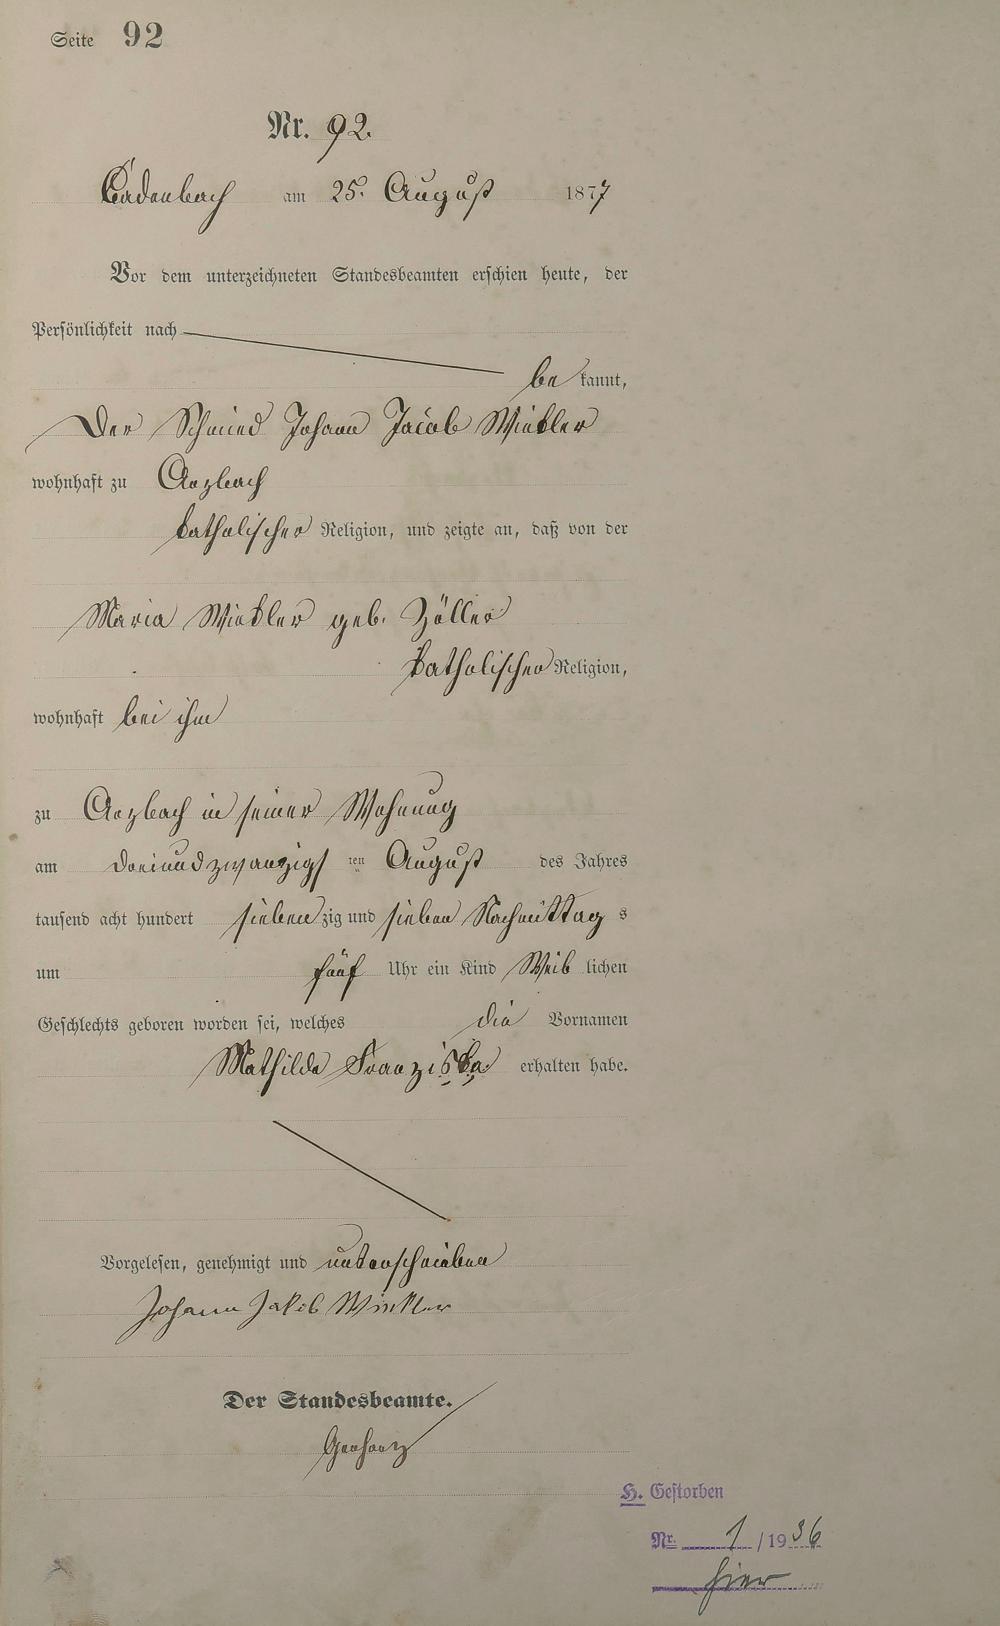 Seite 92
Nr. 92.
Cadenbach am 25. August 1877
Vor dem unterzeichneten Standesbeamten erschien heute, der
Persönlichkeit nach
be kannt,
Der Schmied Johann Jacob Winkler
wohnhaft zu Arzbach
katholischer Religion, und zeigte an, daß von der
Maria Winkler geb. Zöller
katholischer Religion,
wohnhaft bei ihm
zu Arzbach in seiner Wohnung
am dreiundzwanzigs ten August des Jahres
tausend acht hundert sieben zig und sieben Nachmittag s
um fünf Uhr ein Kind Weib lichen
Geschlechts geboren worden sei, welches die Vornamen
Mathilde Franziska erhalten habe.
Vorgelesen, genehmigt und unterschrieben
Johann Jakob Winkler
Der Standesbeamte.
Gerharz
H. Gestorben
Nr. 1 / 1936
hier